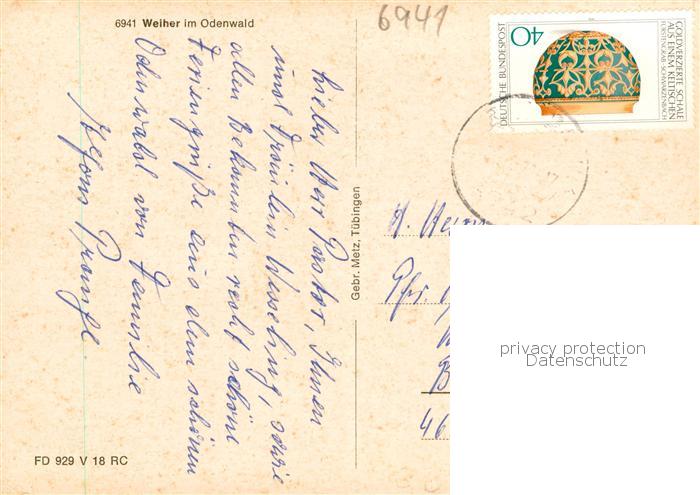 6941 Weiher im Odenwald
6941
DEUTSCHE BUNDESPOST
40
GOLDVERZIERTE SCHALE
AUS EINEM KELTISCHEN
FÜRSTENGRAB · SCHWARZENBACH
Lieber Herr Pastor, Ihnen
und Fräulein Wesseling, sowie
allen Bekannten recht schöne
Feriengrüße aus dem schönen
Odenwald von Familie
Alfons
Gebr. Metz, Tübingen
Pfr.
46
privacy protection
Datenschutz
FD 929 V 18 RC